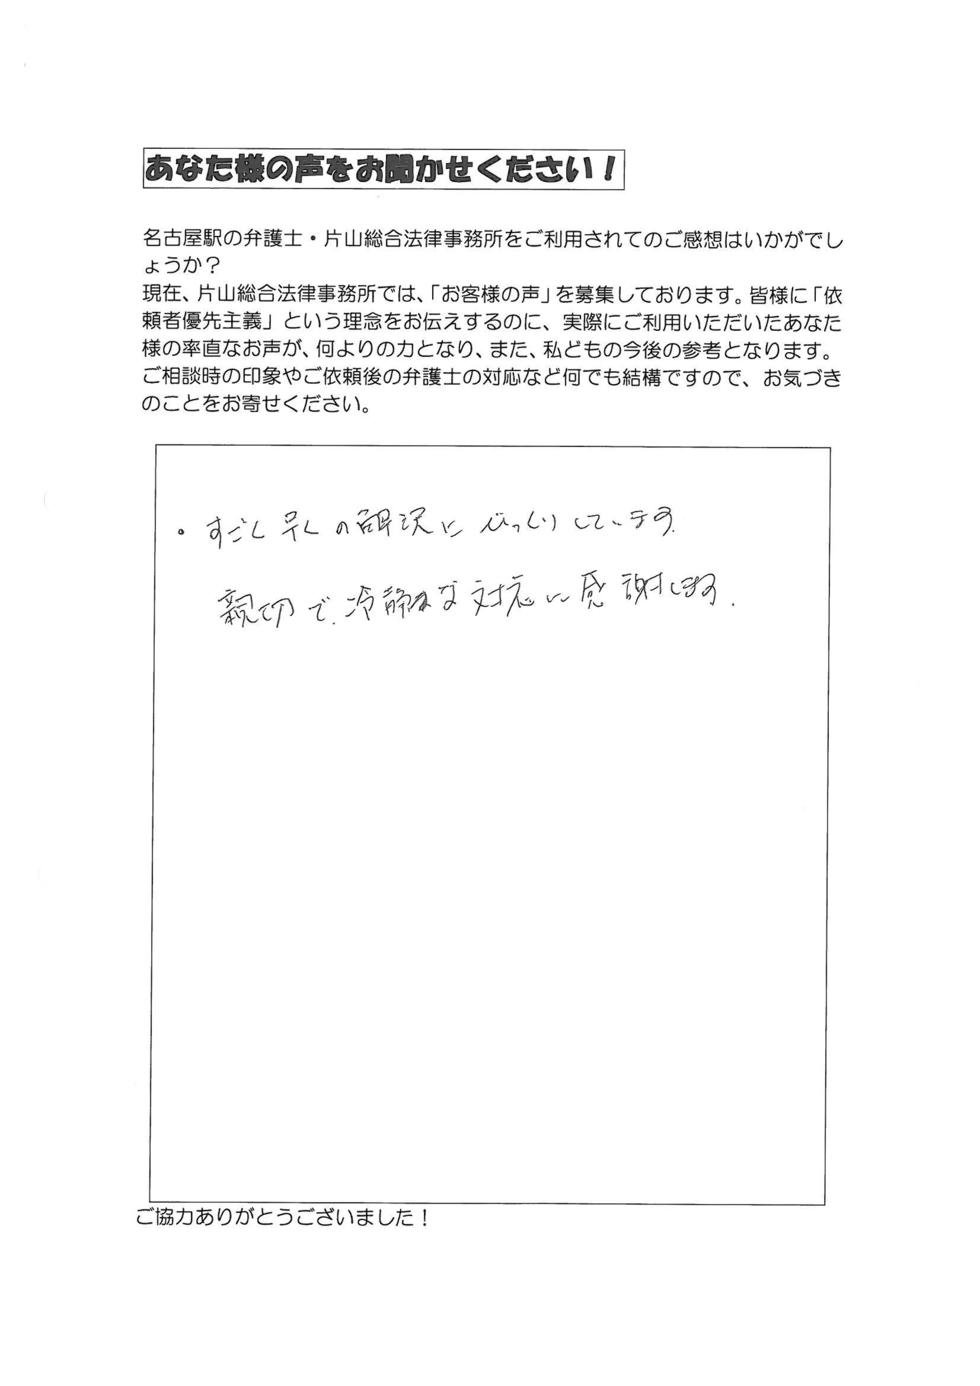 あなた様の声をお聞かせください！
名古屋駅の弁護士・片山総合法律事務所をご利用されてのご感想はいかがでし
ょうか？
現在、片山総合法律事務所では、「お客様の声」を募集しております。皆様に「依
頼者優先主義」という理念をお伝えするのに、実際にご利用いただいたあなた
様の率直なお声が、何よりの力となり、また、私どもの今後の参考となります。
ご相談時の印象やご依頼後の弁護士の対応など何でも結構ですので、お気づき
のことをお寄せください。
・すごく早くの解決にびっくりしています.
親切で、冷静な対応に感謝します.
ご協力ありがとうございました！